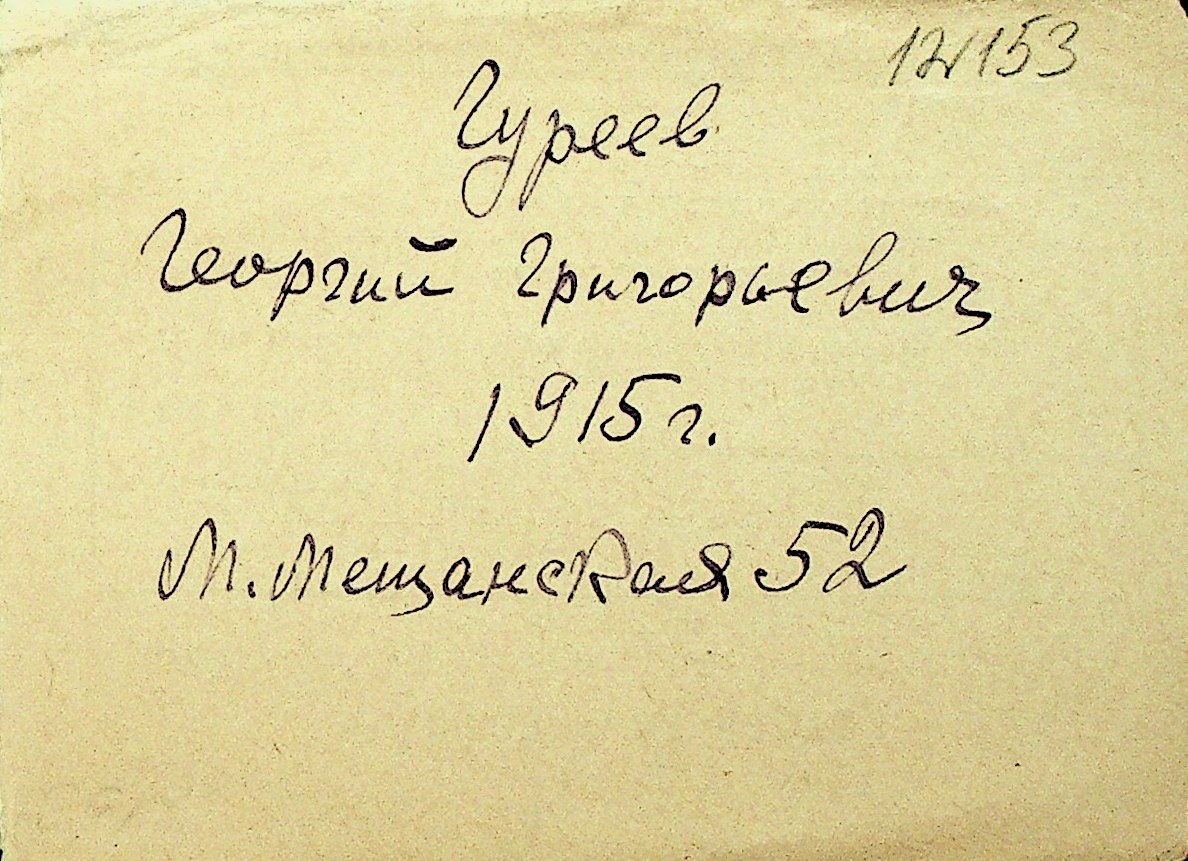 12/153
Гуреев
Георгий Григорьевич
1915 г.
М. Мещанская 52